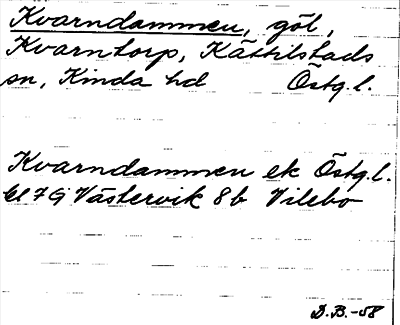 Kvarndammen, göl,
Kvarntorp, Kättilstads
sn, Kinda hd Östg.l.
Kvarndammen ek Östg.l.
bl 7G Västervik 8b Vilebo
D.B.-58